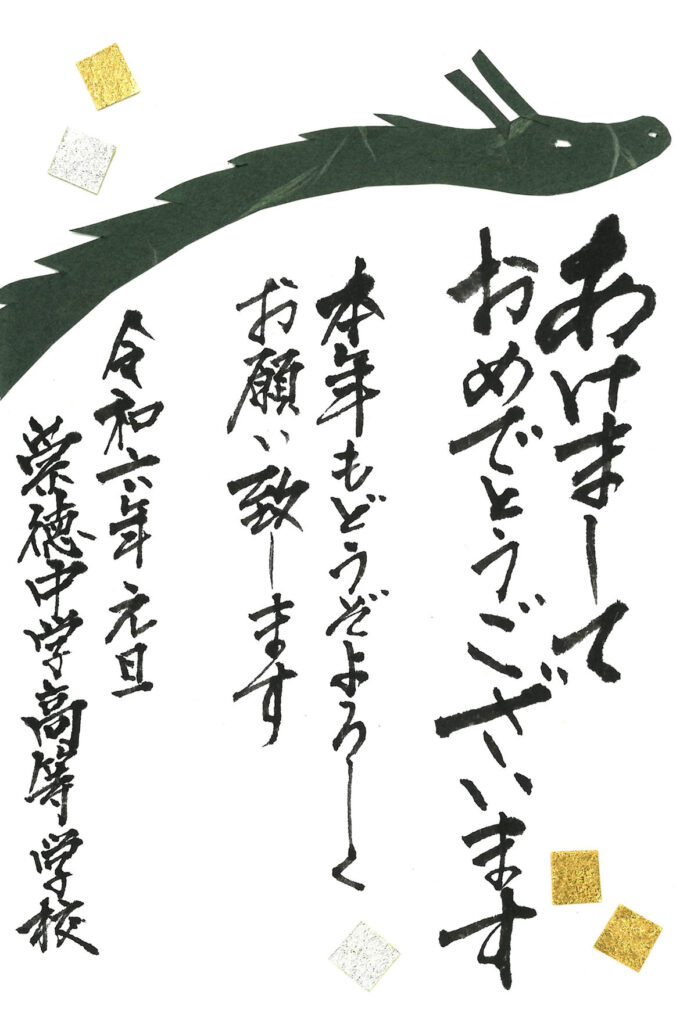 あけまして
おめでとうございます
本年もどうぞよろしく
お願い致します
令和六年元旦
崇徳中学高等学校